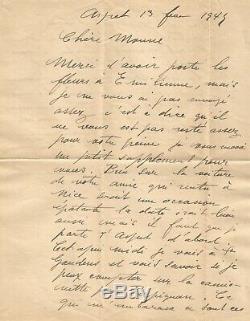 Aspet 13 fevr 1949
Chère Mounne
Merci d'avoir porté les
fleurs à Emilienne, mais
je ne vous ai pas envoyé
assez, c'est à dire qu'il
ne vous est pas resté assez
pour votre peine je vous
un petit supplément pour
vous. Pour la voiture
de votre amie qui rentre à
Nice serait une occasion
épatante la date serait bien
aussi mais il faut que je
parte d'Aspet d'abord.
Cet après midi je vais à St
Gaudens et vais savoir si je
peux compter sur la camion-
nette Perpignan. Ce
qui m'embarrasse à tout ces